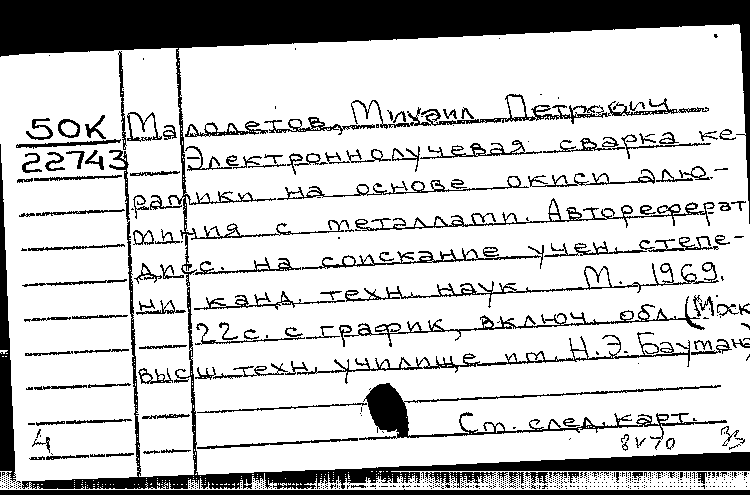 50К Малолетов, Михаил Петрович
22743 Электроннолучевая сварка ке-
рамики на основе окиси алю-
миния с металлами. Автореферат
дисс. на соискание учен. степе-
ни канд. техн. наук. М., 1969.
22с. с график, включ. обл. (Моск
высш. техн. училище им. Н.Э. Баумана)
Ст. след. карт.
4 8V70 33